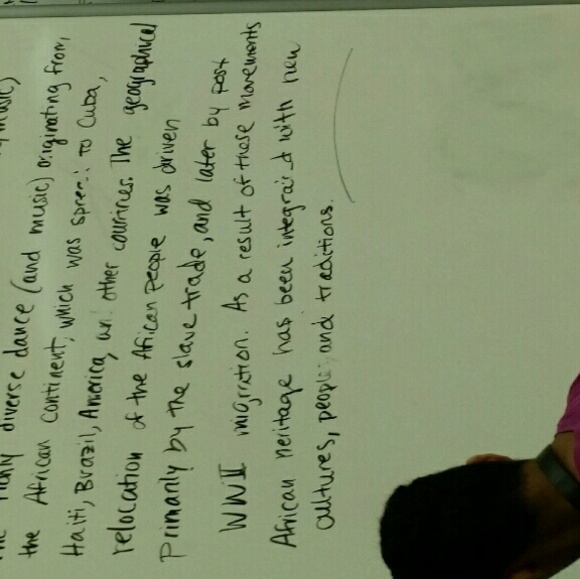 richly diverse dance (and music)
the African continent, which was spread to Cuba, originating from,
Haiti, Brazil, America, and other countries. The geographical
relocation of the African people was driven
primarily by the slave trade, and later by post
WWII migration. As a result of these movements
African heritage has been integrated with new
cultures, people and traditions.